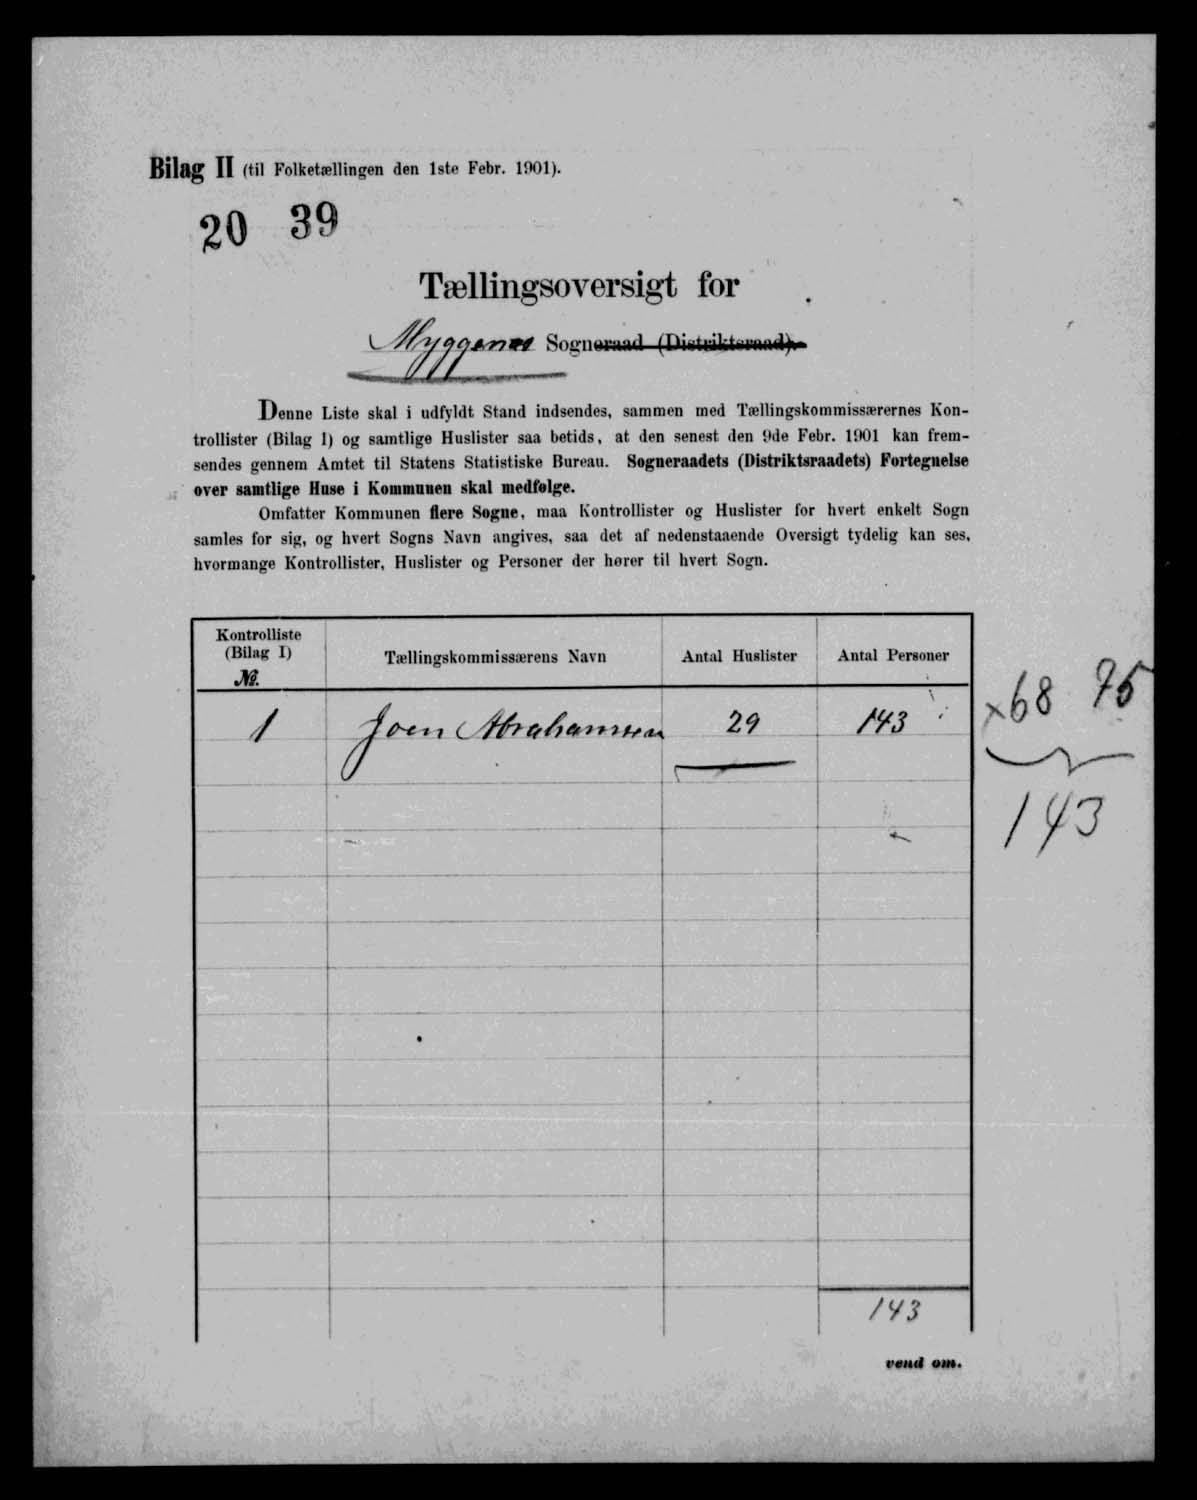 Bilag II (til Folketællingen den 1ste Febr. 1901).
20 39
Tællingsoversigt for
Myggenæs Sogneraad (Distriktsraad).
Denne Liste skal i udfyldt Stand indsendes, sammen med Tællingskommissærernes Kon-
trollister (Bilag I) og samtlige Huslister saa betids, at den senest den 9de Febr. 1901 kan frem-
sendes gennem Amtet til Statens Statistiske Bureau. Sogneraadets (Distriktsraadets) Fortegnelse
over samtlige Huse i Kommunen skal medfølge.
Omfatter Kommunen flere Sogne, maa Kontrollister og Huslister for hvert enkelt Sogn
samles for sig, og hvert Sogns Navn angives, saa det af nedenstaaende Oversigt tydelig kan ses,
hvormange Kontrollister, Huslister og Personer der hører til hvert Sogn.
Kontrolliste
(Bilag I)
№.
Tællingskommissærens Navn
Antal Huslister
Antal Personer
1 Joen Abrahamsen 29 143
×68 75
143
143
vend om.